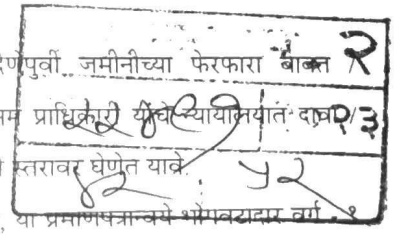 देणेपुर्वी जमीनीच्या फेरफारा बाबत २
प्राधिकारी यांचे न्यायालयात दावा २३
स्तरावर घेणेत यावे. ५२
या प्रमाणपत्रान्वये भोगवटादार वर्ग १